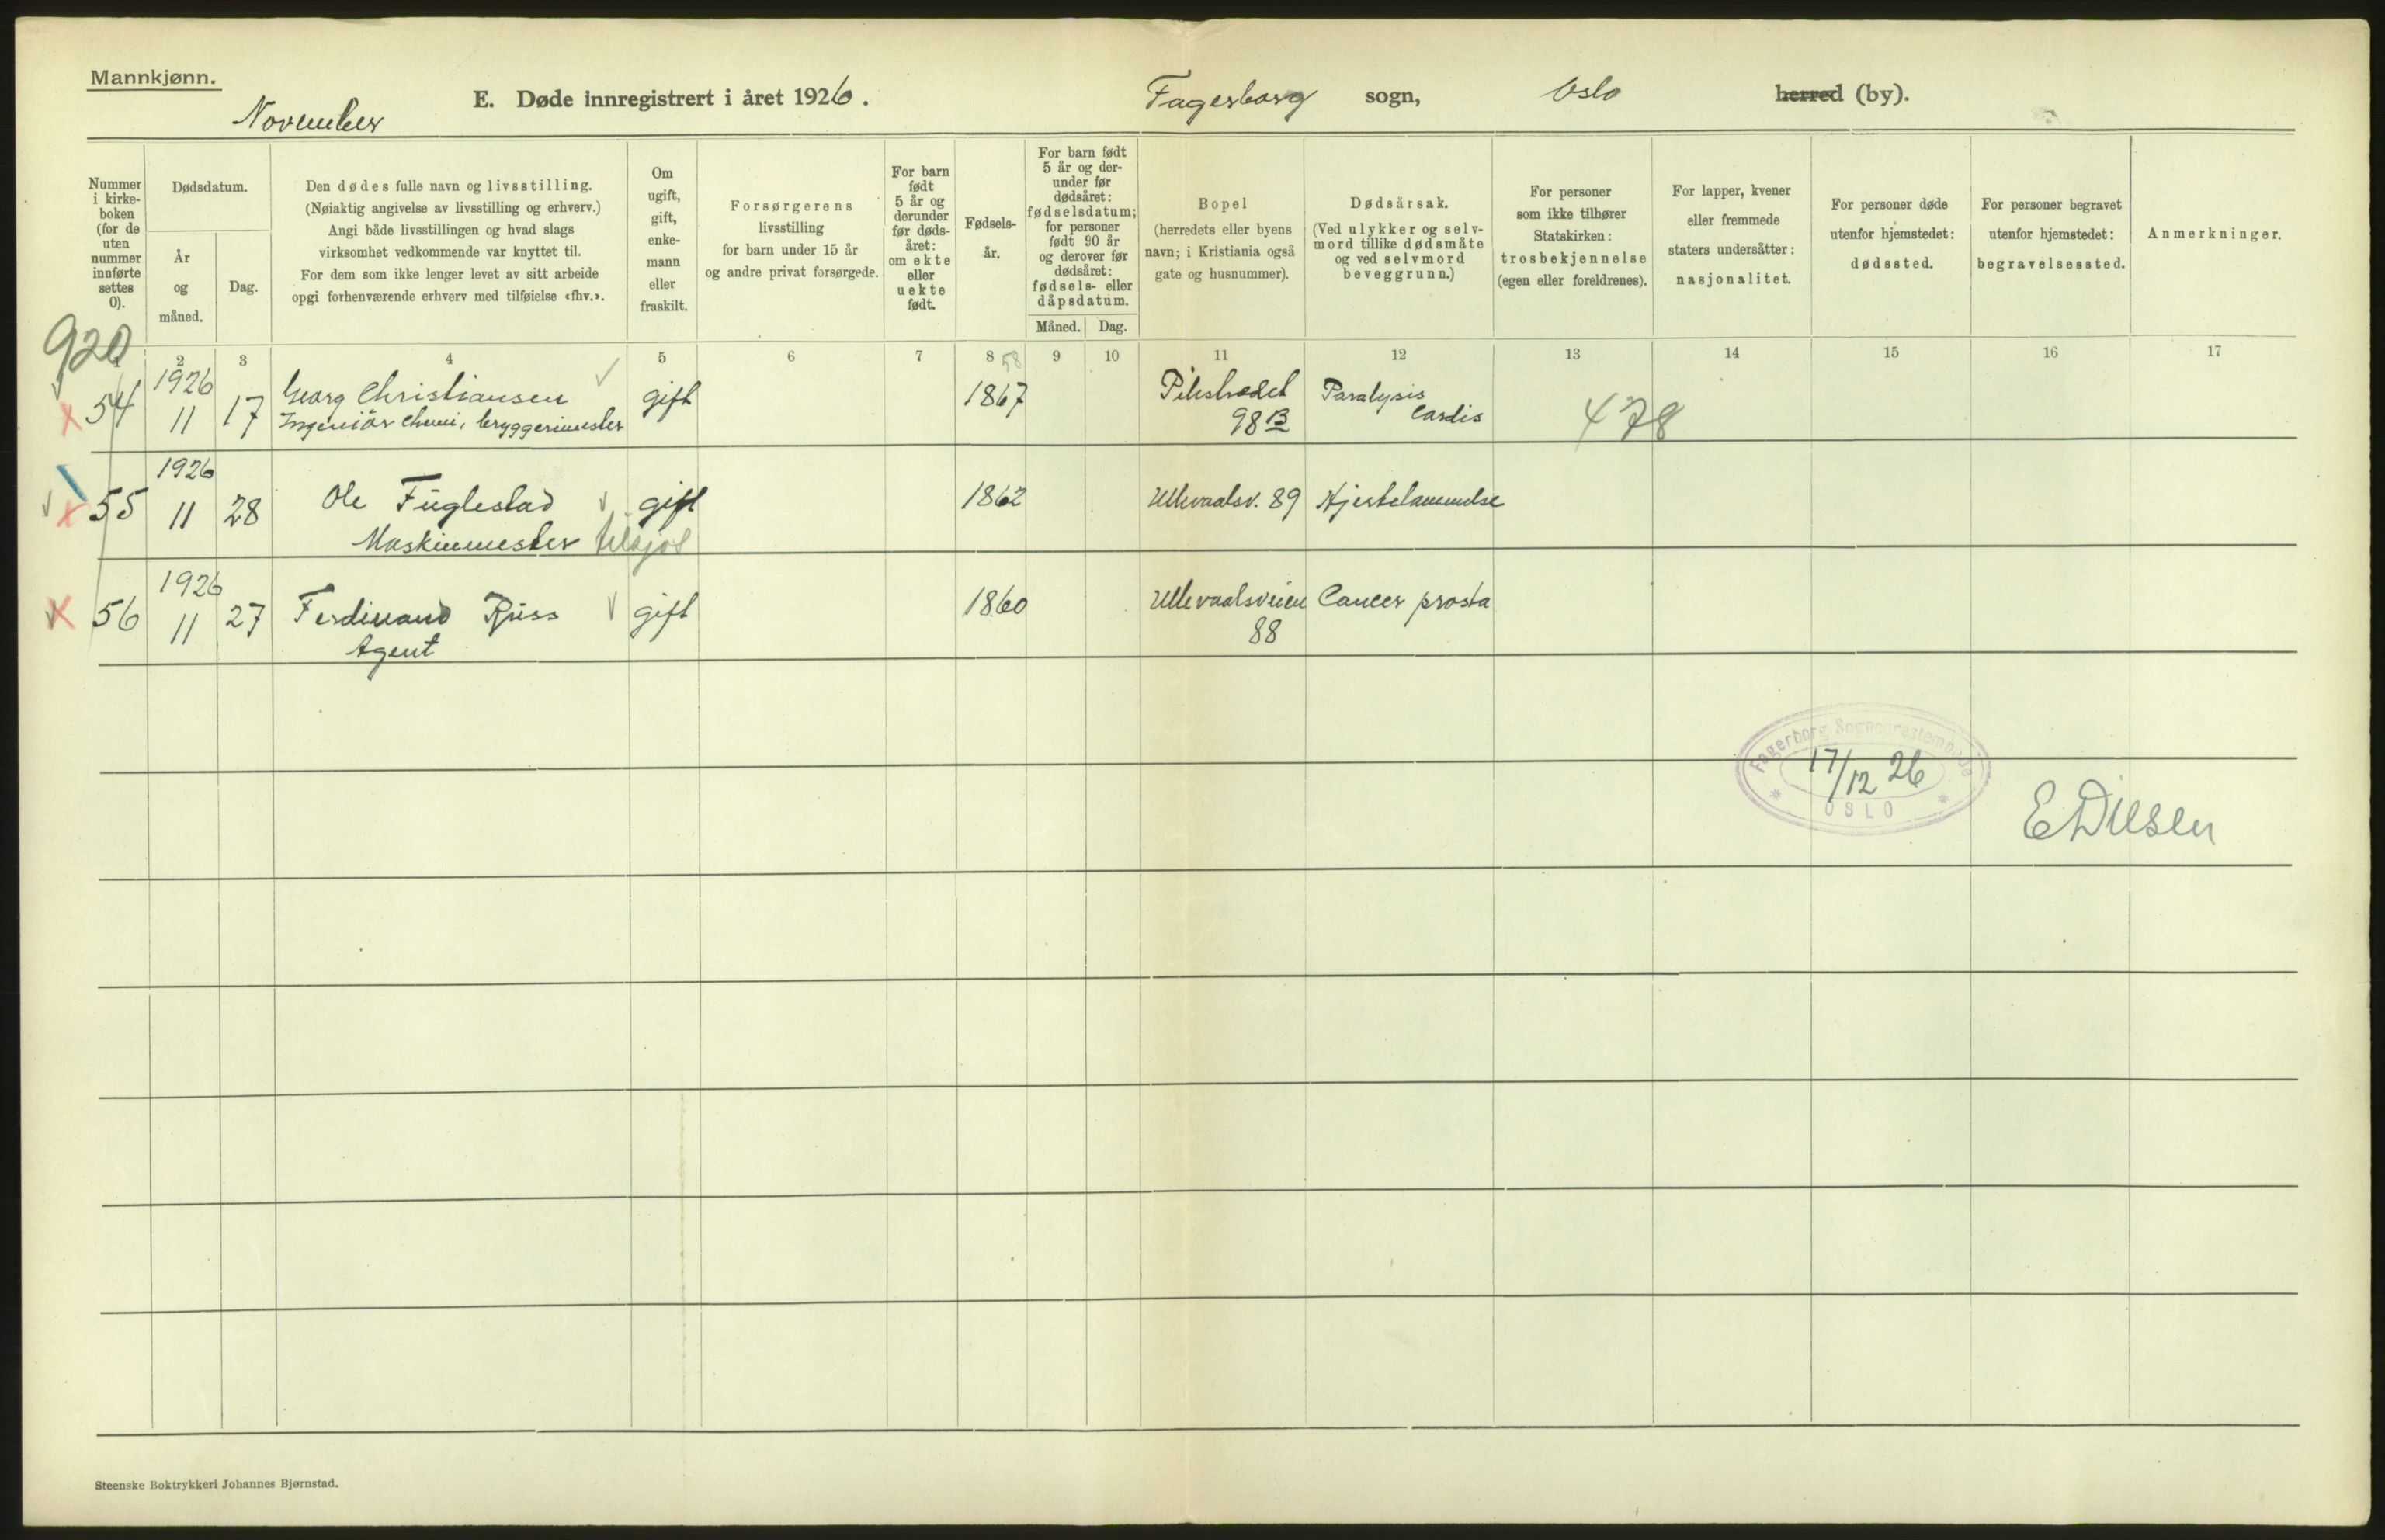 Mannkjønn.
November
E. Døde innregistrert i året 1926.
Fagerborg sogn, Oslo herred (by).
Nummer
i kirke-
boken
(for de
uten
nummer
innførte
settes
0).
Dødsdatum.
År
og
måned.
Dag.
Den dødes fulle navn og livsstilling.
(Nøiaktig angivelse av livsstilling og erhverv.)
Angi både livsstillingen og hvad slags
virksomhet vedkommende var knyttet til.
For dem som ikke lenger levet av sitt arbeide
opgi forhenværende erhverv med tilføielse «fhv.».
Om
ugift,
gift,
enke-
mann
eller
fraskilt.
Forsørgerens
livsstilling
for barn under 15 år
og andre privat forsørgede.
For barn
født
5 år og
derunder
før døds-
året:
om ekte
eller
uekte
født.
Fødsels-
år.
For barn født
5 år og der-
under før
dødsåret:
fødselsdatum;
for personer
født 90 år
og derover før
dødsåret:
fødsels- eller
dåpsdatum.
Måned. Dag.
Bopel
(herredets eller byens
navn; i Kristiania også
gate og husnummer).
Dødsårsak.
(Ved ulykker og selv-
mord tillike dødsmåte
og ved selvmord
beveggrunn.)
For personer
som ikke tilhører
Statskirken:
trosbekjennelse
(egen eller foreldrenes).
For lapper, kvener
eller fremmede
staters undersåtter:
nasjonalitet.
For personer døde
utenfor hjemstedet:
dødssted.
For personer begravet
utenfor hjemstedet:
begravelsessted.
Anmerkninger.
920
2 3 4 5 6 7 8 58 9 10 11 12 13 14 15 16 17
1926
54 11 17 Georg Christiansen gift 1867 Pilestrædet Paralysis
Ingeniör Chemi, bryggerimester 98 B Cordis 478
1926
55 11 28 Ole Fuglestad gift 1862 Ullevaalsv. 89 Hjertelammelse
Maskinmester tilsjøs
1926
56 11 27 Ferdinand Russ gift 1860 Ullevaalsveien Cancer prosta
Agent 88
Fagerborg Sogneprestembede
17/12 26
OSLO
E Diesen
Steenske Boktrykkeri Johannes Bjørnstad.